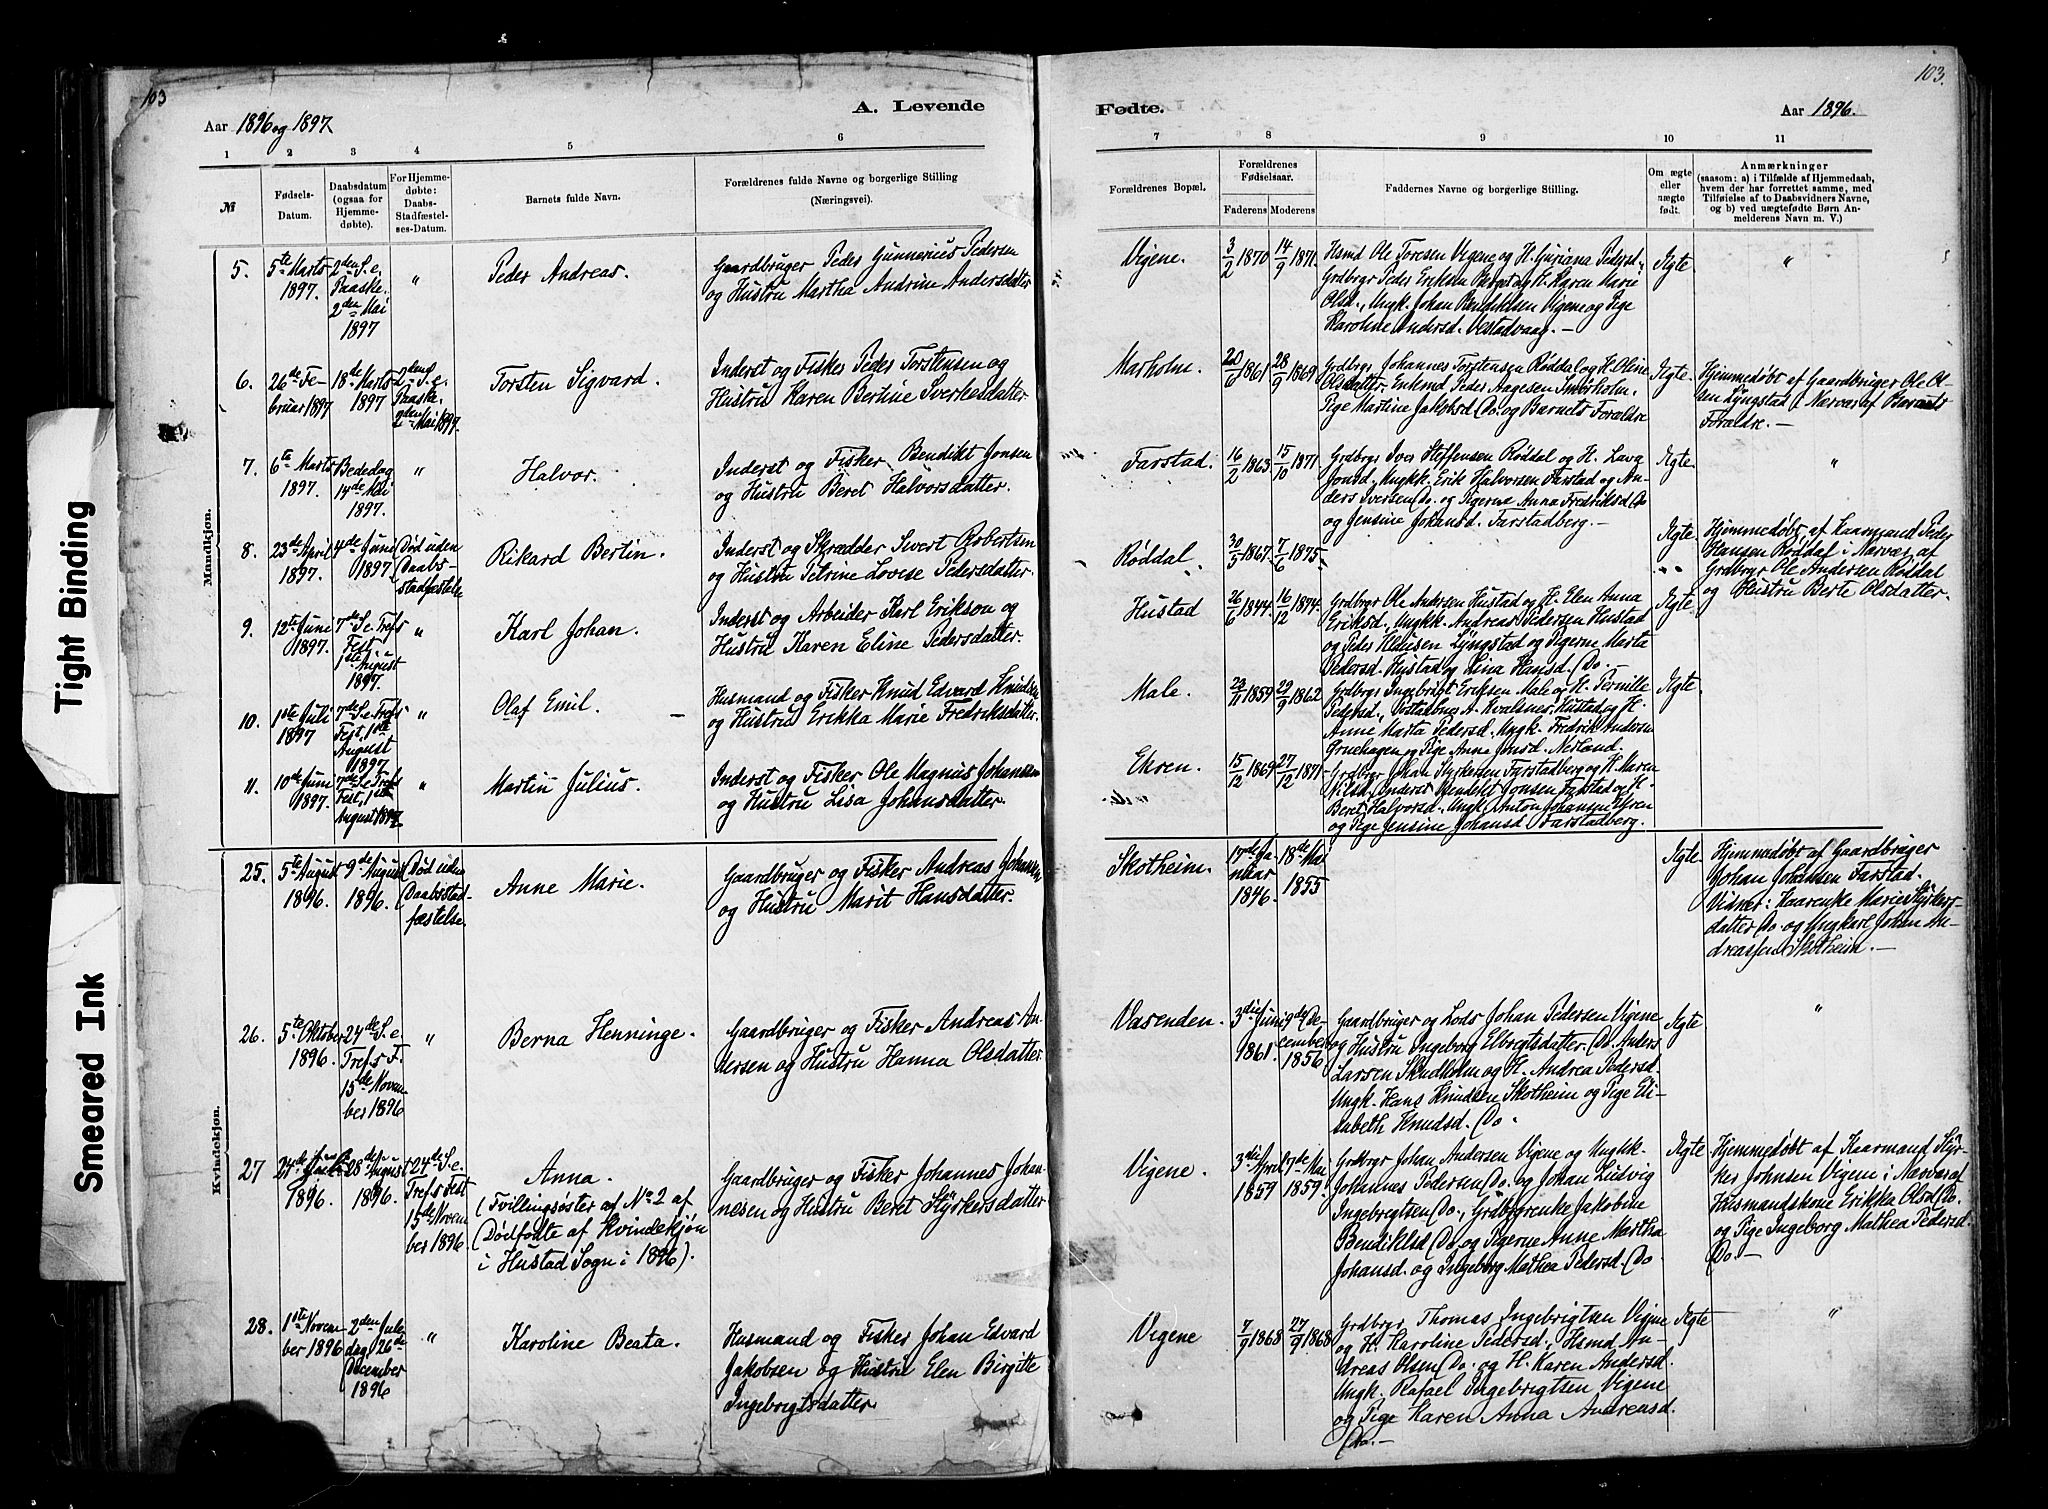 103
103.
A. Levende
Fødte.
Aar 1896 og 1897
Aar 1896.
1 2 3 4 5 6
7 8 9 10 11
№
Fødsels-
Datum.
Daabsdatum
(ogsaa for
Hjemme-
døbte).
For Hjemme-
døbte:
Daabs-
Stadfæstel-
ses-Datum.
Barnets fulde Navn.
Forældrenes fulde Navne og borgerlige Stilling
(Næringsvei).
Forældrenes Bopæl.
Forældrenes
Fødselsaar.
Faderens Moderens
Faddernes Navne og borgerlige Stilling.
Om ægte
eller
uægte
født.
Anmærkninger
(saasom: a) i Tilfælde af Hjemmedaab,
hvem der har forrettet samme, med
Tilføielse af to Daabsvidners Navne,
og b) ved uægtefødte Børn An-
melderens Navn m. V.)
Mandkjøn.
5.
5te Marts
1897.
2den S. e.
Paaske.
2den Mai
1897
"
Peder Andreas.
Gaardbruger Peder Gunnerius Pedersen
og Hustru Martha Andrine Andersdatter
Vigene.
3/2 1870
14/9 1871.
Hsmd Ole Toresen Vigene og H. Guriana Pedersd.,
Grdbrgr Peder Eriksen Berget og H. Karen Marie
Olsd., Ungk. Johan Bendiktsen Vigene og Pige
Karoline Andersd. Vestadvaag. —
Ægte
"
6.
26de Fe-
bruar 1897
18de Marts
1897
2den S. e.
Paaske.
2den Mai 1897.
Torsten Sigvard.
Inderst og Fisker Peder Torstensen og
Hustru Karen Bertine Sverkesdatter
Marholm.
20/6 1861
28/9 1869
Grdbrgr. Johannes Torstensen Røddal og H. Oline
Olsdatter. Enkemd Peder Aagesen Smørholm,
Pige Martine Jakobsd. Do. og Barnets Forældre
Ægte.
Hjemmedøbt af Gaardbruger Ole Ol-
sen Lyngstad i Nærvær af Barnets
Forældre. —
7.
6te Marts
1897.
Bededag
14de Mai
1897.
"
Halvor.
Inderst og Fisker Bendikt Jonsen
og Hustru Beret Halvorsdatter.
Farstad.
16/2 1863
15/10 1871
Grdbrgr Iver Steffensen Røddal og H. Lava
Jonsd., Ungkk. Erik Halvorsen Farstad og An-
ders Iversen Do. og Pigerne Anna Fredriksd. Do
og Jensine Johansd. Farstadberg. —
Ægte
"
8.
23de April
1897.
4de Juni
1897
Død uden
Daabs-
stadfæstelse
Rikard Bertin.
Inderst og Skrædder Sivert Robertsen
og Hustru Petrine Lovise Pedersdatter.
Røddal
30/5 1867
7/6 1875
Ægte
Hjemmedøbt af Kaarmand Peder
Hansen Røddal i Nærvær af
Grdbrgr Ole Andersen Røddal
og Hustru Berte Olsdatter.
9.
12te Juni
1897.
7de S. e. Tref.s
Fest.
1ste August
1897.
"
Karl Johan.
Inderst og Arbeider Karl Erikson og
Hustru Karen Eline Pedersdatter.
Hustad
26/6 1844.
16/12 1874.
Grdbrgr Ole Andersen Hustad og H. Elen Anna
Eriksd., Ungkk. Andreas Pedersen Hustad
og Peder Klausen Lyngstad og Pigerne Marta
Pedersd. Hustad og Lina Hansd. Do. —
Ægte
10.
1ste Juli
1897
7de S. e. Tref.s
Fest, 1ste
August
1897
"
Olaf Emil.
Husmand og Fisker Knud Edvard Knudsen
og Hustru Erikka Marie Fredriksdatter.
Male.
23/11 1859
29/9 1862
Grdbrgr Ingebrigt Eriksen Male og H. Pernille
Pedersd., A. Kvalsnes Hustad og H.
Anne Marta Pedersd. Ungk. Fredrik Andersen
Gruehagen og Pige Anna Jonsd. Nerland.
Ægte
11.
10de Juni
1897.
7de S. e. Tref.s
Fest, 1ste
August 1897
"
Martin Julius.
Inderst og Fisker Ole Magnus Johansen
og Hustru Lisa Johansdatter.
Ehren.
15/12 1869
27/12 1871
Grdbrgr Johan Styrkersen Farstadberg og H. Maren
Nilsd., Inderst Bendikt Jonsen Farstad og H.
Beret Halvorsd., Ungk Anton Johansen Ehren
og Pige Jensine Johansd Farstadberg.
Kvindekjøn.
25.
5te August
1896.
9de August
1896.
Død uden
Daabsstad-
fæstelse.
Anne Marie.
Gaardbruger og Fisker Andreas Johansen
og Hustru Marit Hansdatter.
Skotheim.
17de Ja-
nuar
1846.
18de Mai
1855
Ægte
Hjemmedøbt af Gaardbruger
Johan Johansen Farstad.
Vidner: Kaarenke Marie Styrkers-
datter Do. og Ungkarl Johan An-
dreassen Skotheim. —
26.
5te Oktober
1896.
24de S. e.
Tref.s F.
15de Novem
ber 1896
"
Berna Henninge.
Gaardbruger og Fisker Andreas An-
dersen og Hustru Hanna Olsdatter
Vasenden.
3die Juni
1861.
9de De-
cember
1856
Gaardbruger og Lods Johan Pedersen Vigene
og Hustru Ingeborg Elbregtsdatter. Do. Anders
Larsen Skudholm og H. Andrea Pedersd.
Ungk. Hans Knudsen Skotheim og Pige Eli-
sabeth Knudsd. Do.
Ægte
"
27
24de
1896.
28de August
1896.
24de S. e.
Tref.s Fest
15de Novem
ber 1896
Anna.
(Tvillingsøster af No 2 af
Dødfødte af Kvindekjøn
i Hustad Sogn i 1896).
Gaardbruger og Fisker Johannes Johan-
nesen og Hustru Beret Styrkersdatter
Vigene.
3die April
1859
7de Mai
1859.
Grdbrgr Johan Andersen Vigene og Ungkk.
Johannes Pedersen Do. og Johan Ludvig
Ingebrigtsen Do., Grdbrgrenke Jakobine
Bendiktsd. Do. og Pigerne Anne Martha
Johansd. og Ingeborg Mathea Pedersd. Do
Ægte
Hjemmedøbt af Kaarmand Styr-
ker Johnsen Vigene i Nærvær af
Husmandskone Erikka Olsd. Do.
og Pige Ingeborg Mathea Pedersd.
Do. —
28.
1ste Novem
ber 1896
2den Jule
dag 26de
December
1896
"
Karoline Beata.
Husmand og Fisker Johan Edvard
Jakobsen og Hustru Elen Birgitte
Ingebrigtsdatter.
Vigene
7/9 1868
27/9 1868
Grdbrgr Thomas Ingebrigtsen Vigene
og H. Karoline Pedersd., Hsmd An-
dreas Olsen Do. og H. Karen Andersd.
Ungk. Rafael Ingebrigtsen Vigene
og Pige Karen Anna Andreasd.
Do. —
Ægte
"
Tight Binding
Smeared Ink